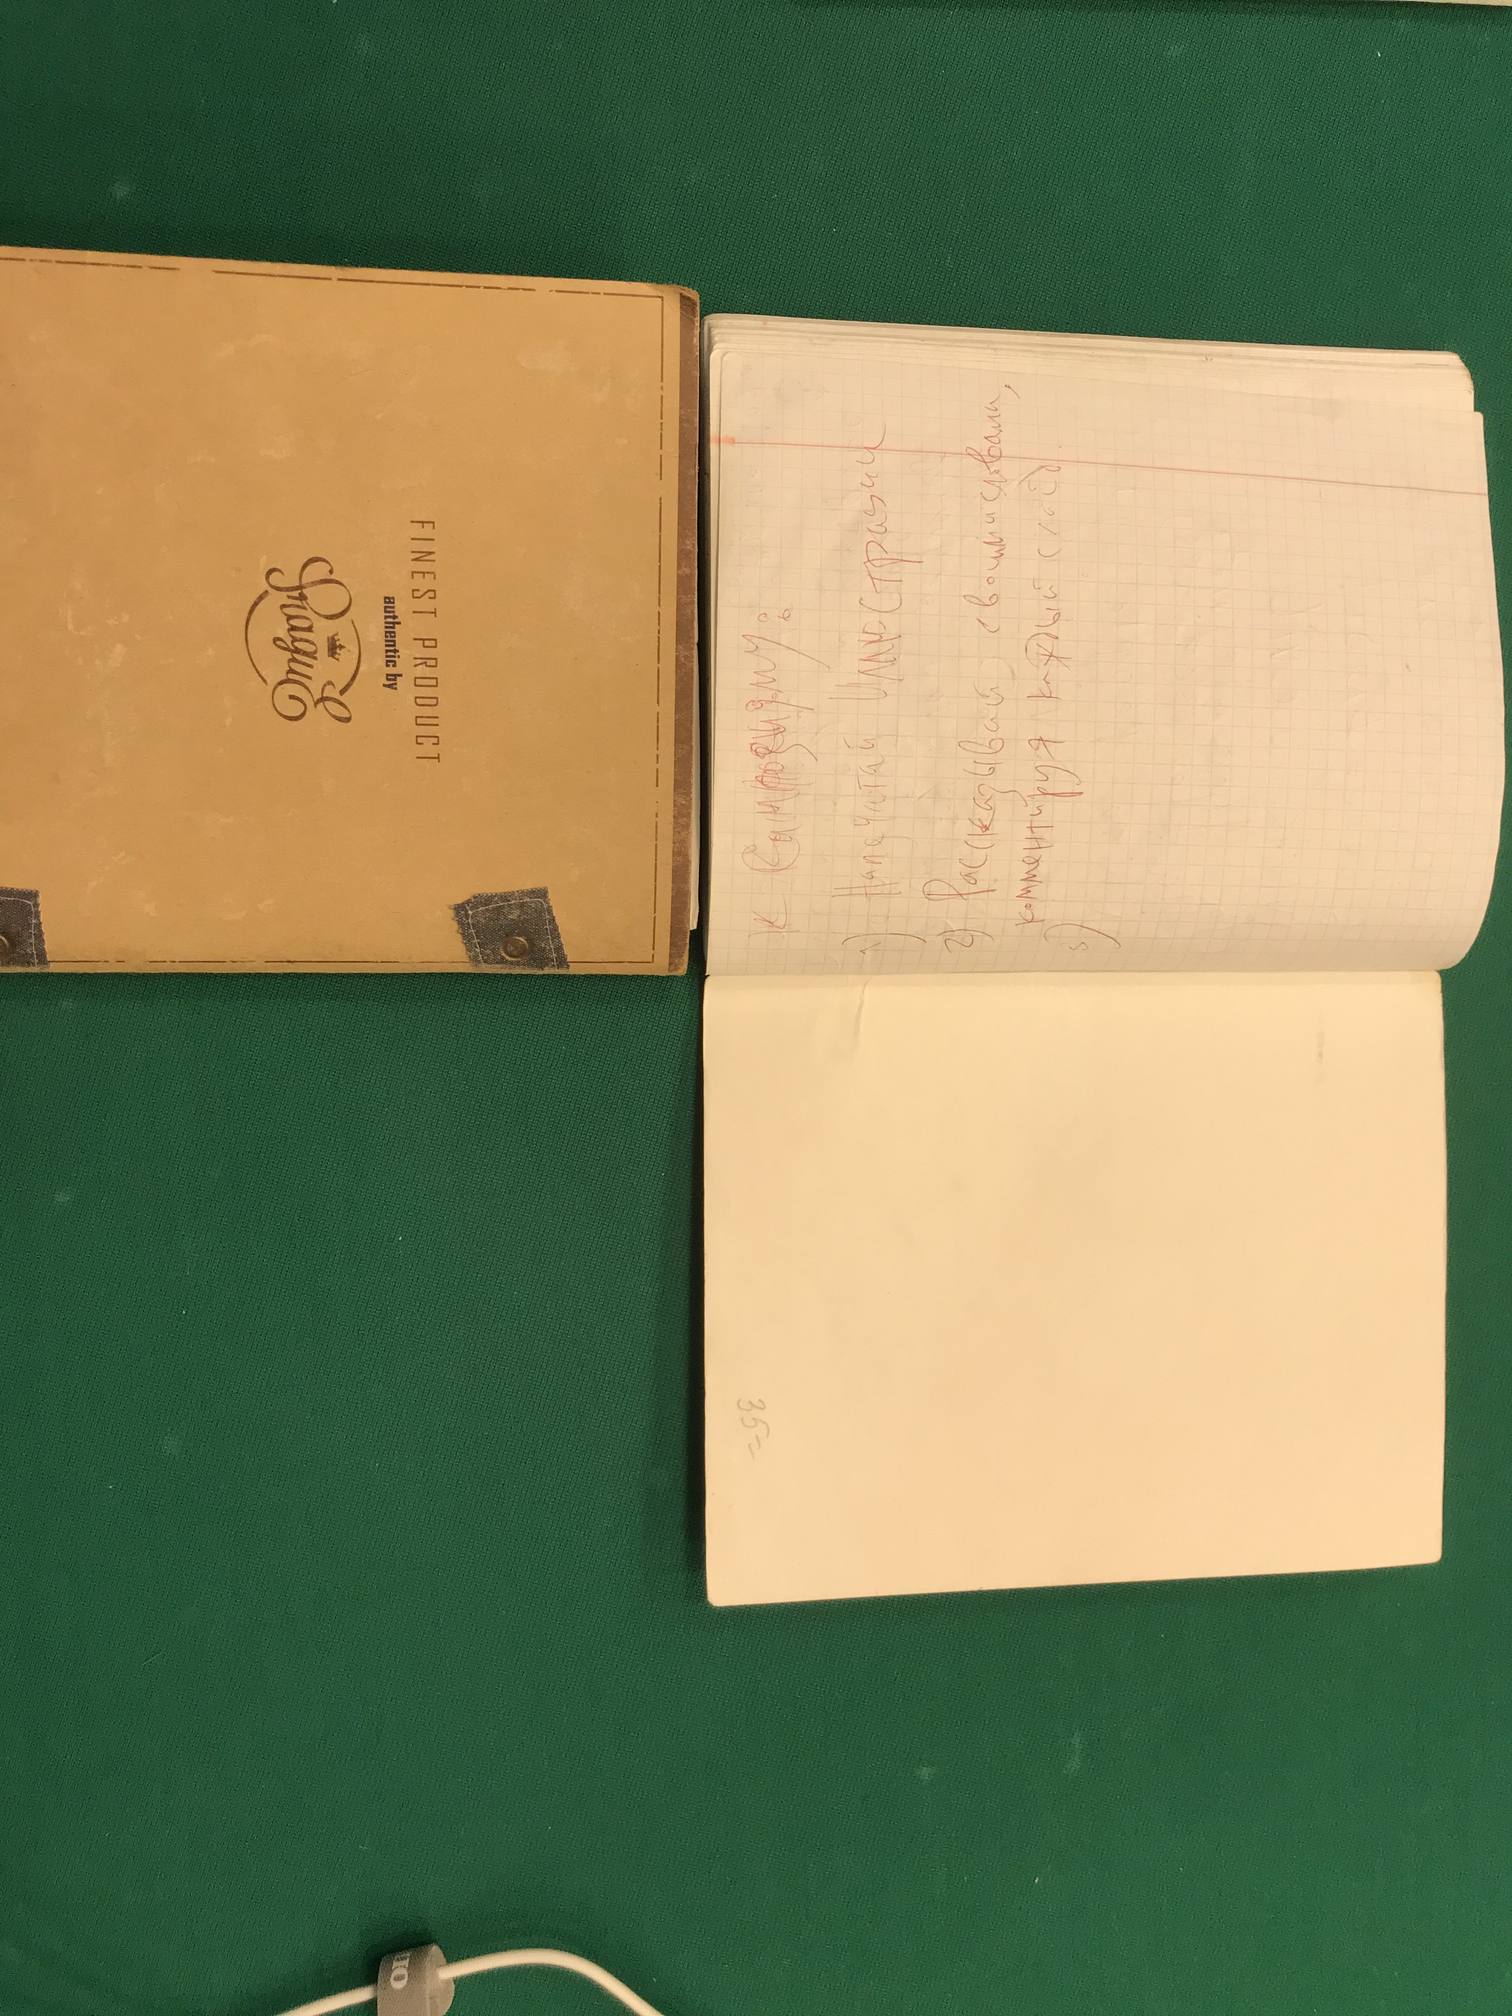 FINEST PRODUCT
authentic by
Prague
К
1) Напечатай иллюстрации
2) Рассказывай своими словами,
комментируя каждый слайд.
3)
35=